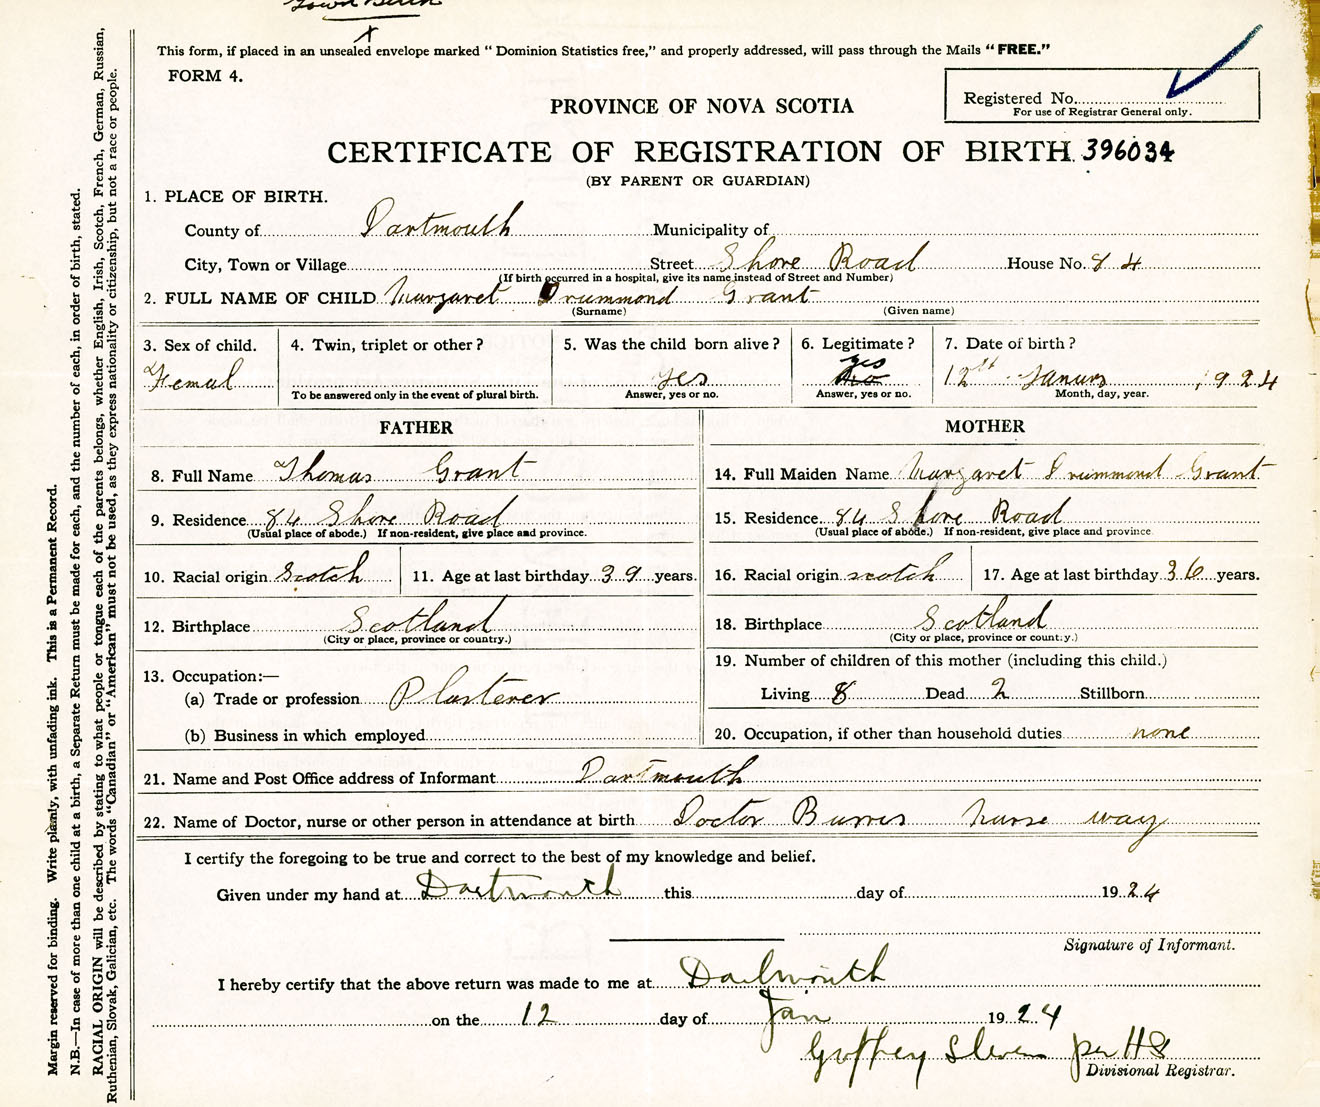 Town Birth
This form, if placed in an unsealed envelope marked " Dominion Statistics free," and properly addressed, will pass through the Mails "FREE."
FORM 4.
Registered No.
For use of Registrar General only.
PROVINCE OF NOVA SCOTIA
CERTIFICATE OF REGISTRATION OF BIRTH. 396034
(BY PARENT OR GUARDIAN)
1. PLACE OF BIRTH.
County of Dartmouth Municipality of
City, Town or Village Street Shore Road House No. 84
(If birth occurred in a hospital, give its name instead of Street and Number)
2. FULL NAME OF CHILD Margaret Drummond Grant
(Surname) (Given name)
3. Sex of child. 4. Twin, triplet or other? 5. Was the child born alive? 6. Legitimate? 7. Date of birth?
yes
Femal yes no 12th January 1924
To be answered only in the event of plural birth. Answer, yes or no. Answer, yes or no. Month, day, year.
FATHER MOTHER
8. Full Name Thomas Grant 14. Full Maiden Name Margaret Drummond Grant
9. Residence 84 Shore Road 15. Residence 84 Shore Road
(Usual place of abode.) If non-resident, give place and province. (Usual place of abode.) If non-resident, give place and province
10. Racial origin Scotch 11. Age at last birthday 39 years. 16. Racial origin scotch 17. Age at last birthday 36 years.
12. Birthplace Scotland 18. Birthplace Scotland
(City or place, province or country.) (City or place, province or country.)
13. Occupation:— 19. Number of children of this mother (including this child.)
(a) Trade or profession Plasterer Living 8 Dead 2 Stillborn
(b) Business in which employed 20. Occupation, if other than household duties none
21. Name and Post Office address of Informant Dartmouth
22. Name of Doctor, nurse or other person in attendance at birth Doctor Burris nurse way
I certify the foregoing to be true and correct to the best of my knowledge and belief.
Given under my hand at Dartmouth this day of 1924
Signature of Informant.
I hereby certify that the above return was made to me at Dartmouth
on the 12 day of Jan 1924
Goffrey Stevens per HS
Divisional Registrar.
Margin reserved for binding. Write plainly, with unfading ink. This is a Permanent Record.
N.B.—In case of more than one child at a birth, a Separate Return must be made for each, and the number of each, in order of birth, stated.
RACIAL ORIGIN will be described by stating to what people or tongue each of the parents belongs, whether English, Irish, Scotch, French, German, Russian,
Ruthenian, Slovak, Galician, etc. The words "Canadian" or "American" must not be used, as they express nationality or citizenship, but not a race or people.